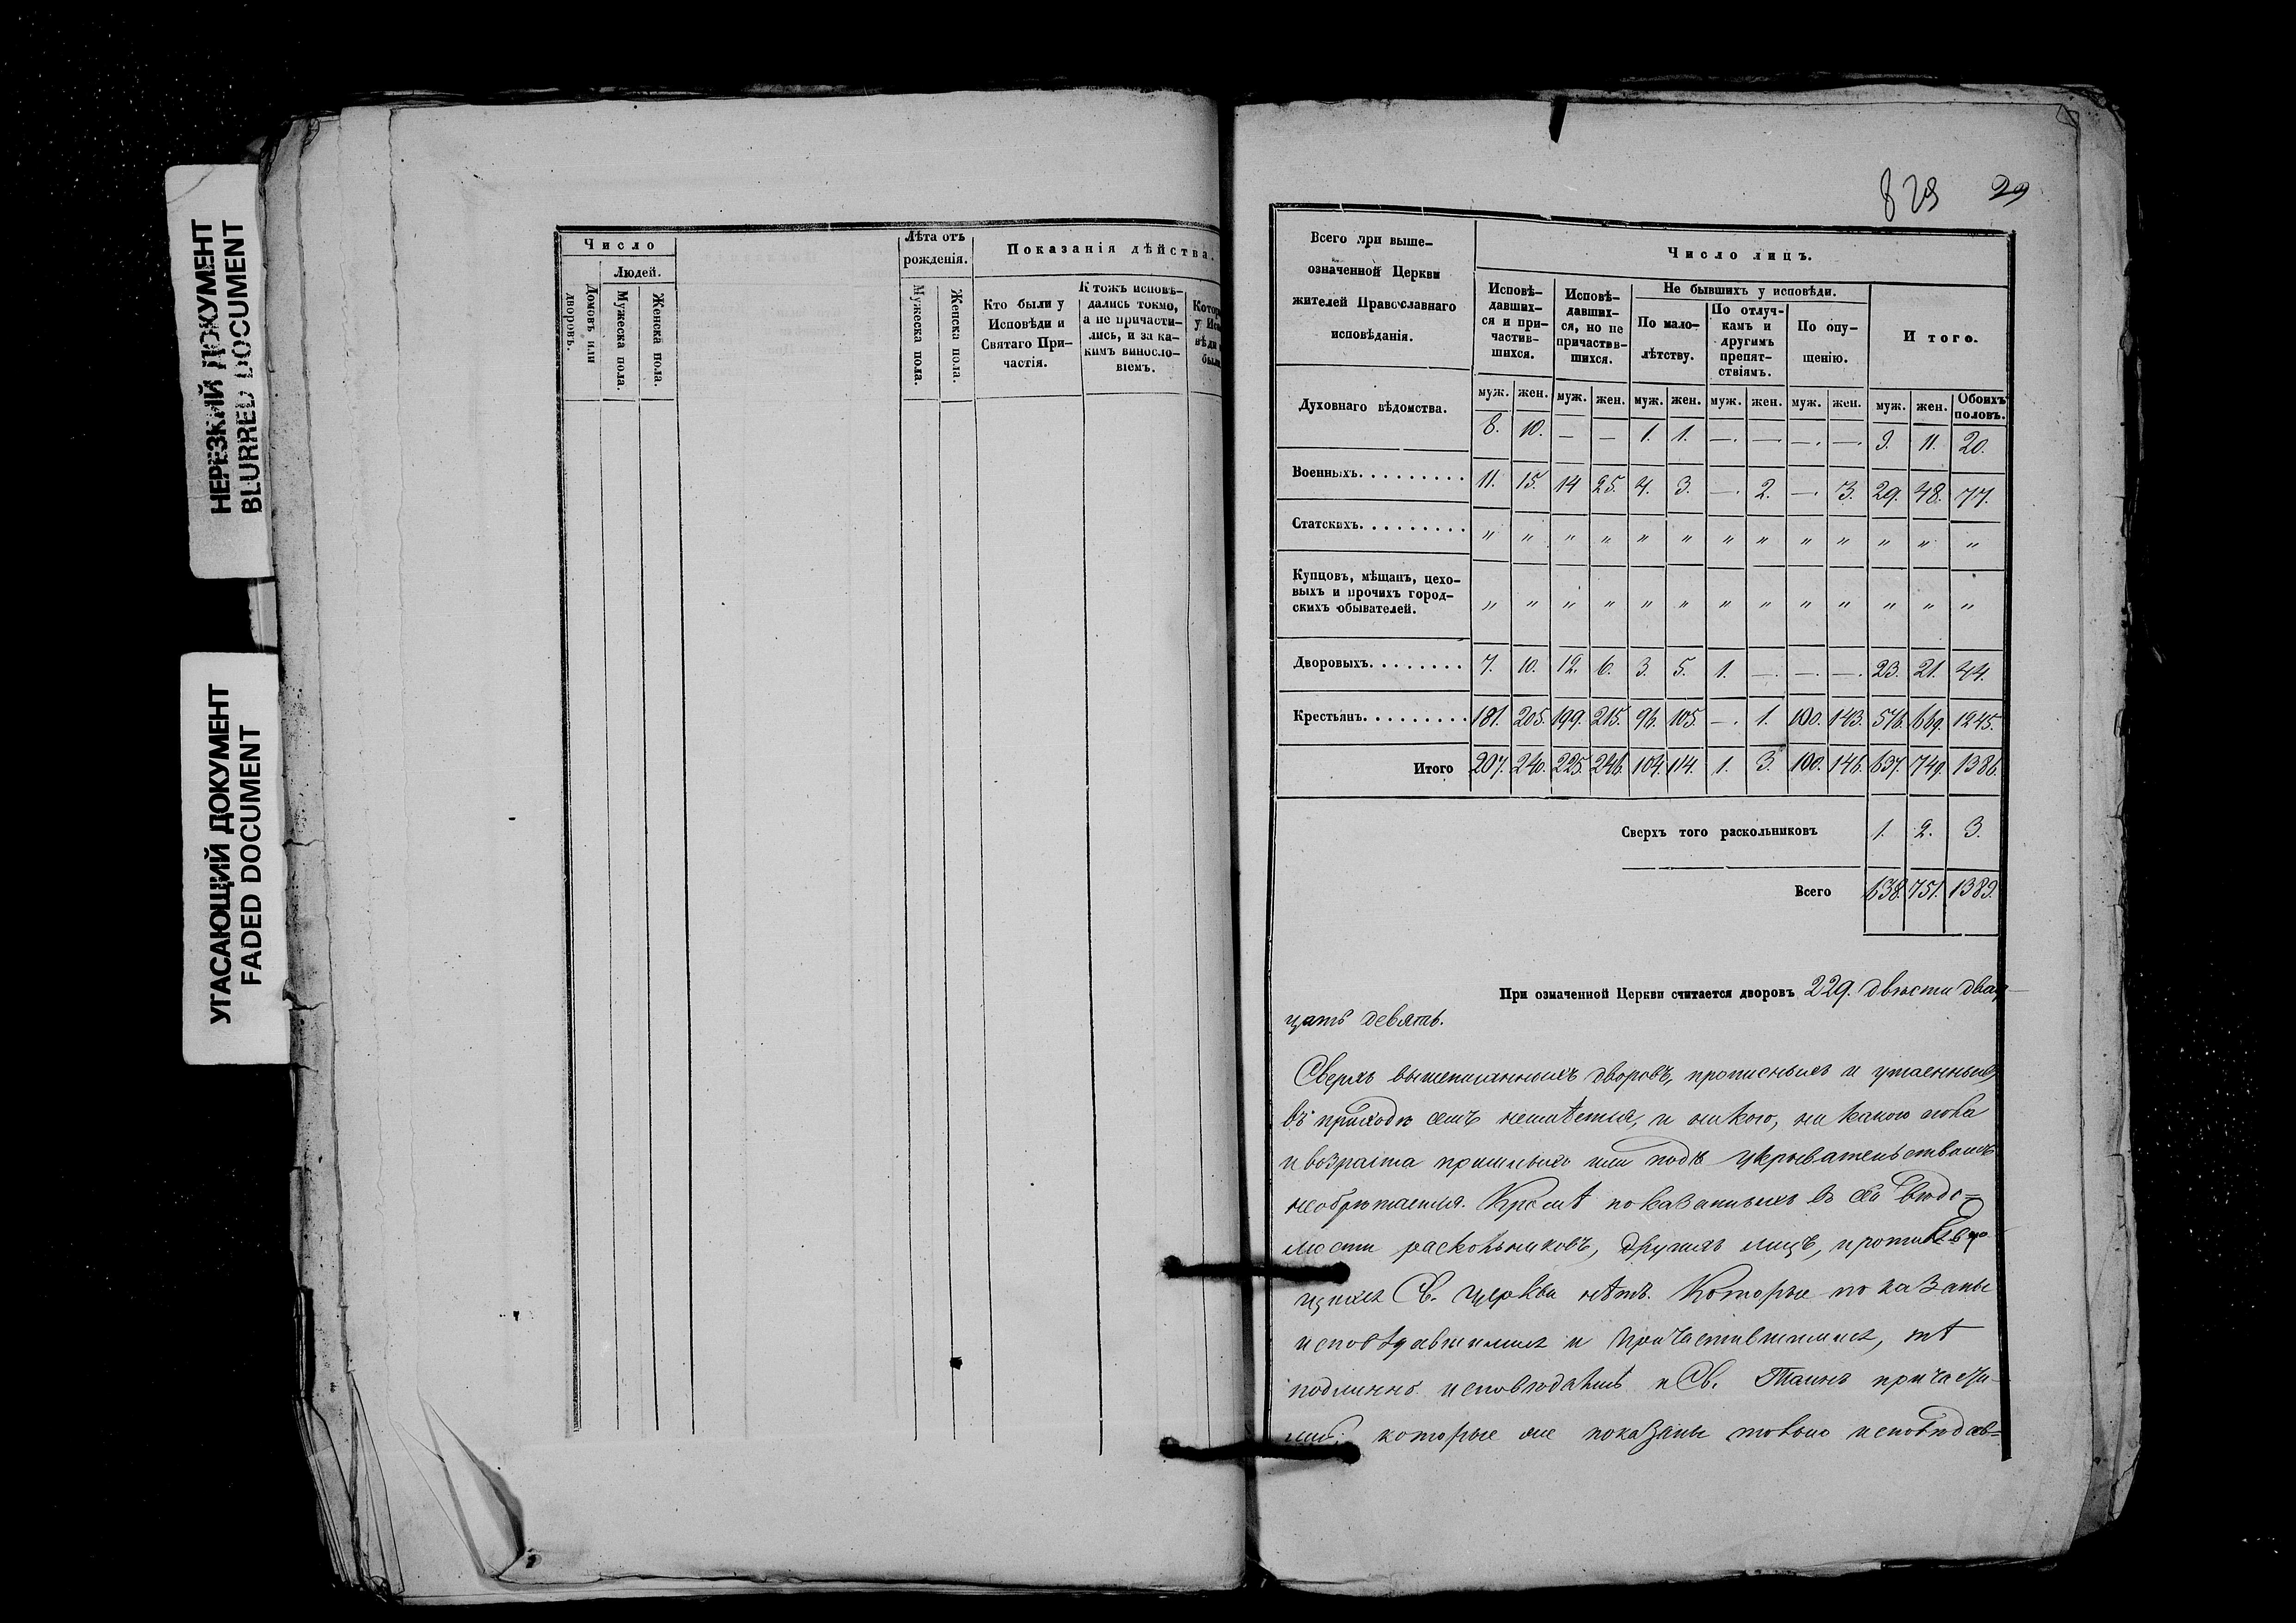 НЕРЕЗКИЙ ДОКУМЕНТ
BLURRED DOCUMENT
УГАСАЮЩИЙ ДОКУМЕНТ
FADED DOCUMENT
Число
Людей.
Домовъ или дворовъ.
Мужеска пола.
Женска пола.
Лѣта отъ рожденія.
Мужеска пола.
Женска пола.
Показанія дѣйства.
Кто были у
Исповѣди и
Святаго При-
частія.
Ктожъ исповѣ-
дались токмо,
а не причасти-
лись, и за ка-
кимъ винословіемъ.
829 29
Всего при выше-
означенной Церкви
жителей Православнаго
исповѣданія.
Число лицъ.
Исповѣ-
давших-
ся и при-
частив-
шихся.
Исповѣ-
давших-
ся, но не
причастив-
шихся.
Не бывшихъ у исповѣди.
По мало-
лѣтству.
По отлуч-
камъ и
другимъ
препят-
ствіямъ.
По опу-
щенію.
Итого.
муж. жен. муж. жен. муж. жен. муж. жен. муж. жен. муж. жен. Обоихъ половъ.
Духовнаго вѣдомства. 8. 10. — — 1. 1. —. —. —. —. 9. 11. 20.
Военныхъ. 11. 15. 14 25. 4. 3. —. 2. —. 3. 29. 48. 77.
Статскихъ. „ „ „ „ „ „ „ „ „ „ „ „ „
Купцовъ, мѣщанъ, цехо-
выхъ и прочихъ город-
скихъ обывателей. „ „ „ „ „ „ „ „ „ „ „ „ „
Дворовыхъ. 7. 10. 12. 6. 3. 5. 1. —. —. —. 23. 21. 44.
Крестьянъ. 181. 205. 199. 215. 96. 105. —. 1. 100. 143. 576. 669. 1245.
Итого 207. 240. 225. 246. 104. 114. 1. 3. 100. 146. 637. 749. 1386.
Сверхъ того раскольниковъ 1. 2. 3.
Всего 638. 751. 1389.
При означенной Церкви считается дворовъ 229. двѣсти два-
цать девять.
Сверхъ вышеписанныхъ дворовъ, прописныхъ и утаенныхъ
въ приходѣ семъ неимѣется, и никого, ни какого пола
и возраста пришлыхъ или подъ укрывательствомъ
необрѣтается. Кромѣ показанныхъ въ сей вѣдо=
мости раскольниковъ, другихъ лицъ, противля-
щихся Св. Церкви нѣтъ. Которые показаны
исповѣдавшимися и причастившимися, тѣ
подлинно исповѣдались и Св. Таинъ причасти-
лись; которые же показаны только исповѣдав=